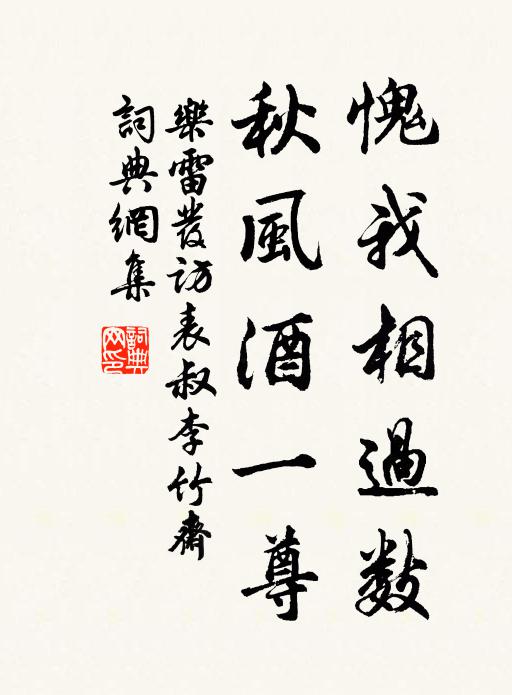 愧我相過數
秋風酒一尊
樂雷發訪表叔李竹齋
詞典網集
詞典网印